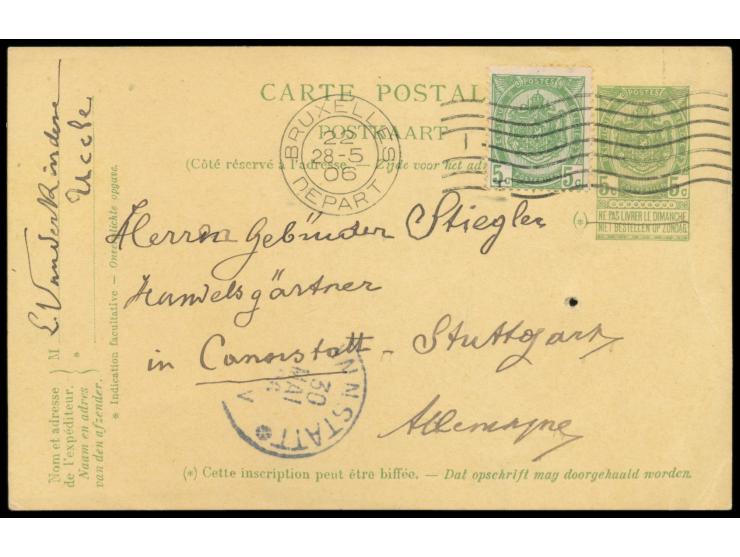 CARTE POSTAL
POSTKAART
(Côté réservé à l'adresse. — Zijde voor het adr
BRUXELLES
22
28-5
06
DEPART
POSTES
5c 5c
POSTES
5c 5c
NE PAS LIVRER LE DIMANCHE
NIET BESTELLEN OP ZONDAG
(*)
Herrn Gebrüder Stiegler
Handelsgärtner
in Cannstatt - Stuttgart
Allemagne
NNSTATT
30
MAI
V
(*) Cette inscription peut être biffée. — Dat opschrift mag doorgehaald worden.
Nom et adresse
de l'expéditeur.
Naam en adres
van den afzender.
M L. Vanderkindere
Uccle
* Indication facultative — Onverplichte opgave.